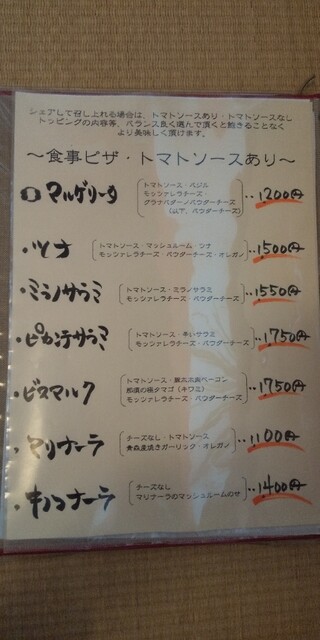 シェアして召し上れる場合は、トマトソースあり・トマトソースなし
トッピングの内容等、バランス良く選んで頂くと飽きることなく
より美味しく頂けます。
～食事ピザ・トマトソースあり～
マルゲリータ
トマトソース・バジル
モッツァレラチーズ・
グラナパダーノパウダーチーズ
(以下、パウダーチーズ)
‥1200円
・ツナ
トマトソース・マッシュルーム・ツナ
モッツァレラチーズ・パウダーチーズ・オレガノ
‥1500円
・ミラノサラミ
トマトソース・ミラノサラミ
モッツァレラチーズ・パウダーチーズ
‥1550円
・ピカンテサラミ
トマトソース・辛いサラミ
モッツァレラチーズ・パウダーチーズ
‥1750円
・ビスマルク
トマトソース・厳木ベーコン
那須の極タマゴ(キワミ)
モッツァレラチーズ・パウダーチーズ
‥1750円
・マリナーラ
チーズなし・トマトソース
青森産焼きガーリック・オレガノ
‥1100円
・キノコナーラ
チーズなし
マリナーラのマッシュルームのせ
‥1400円